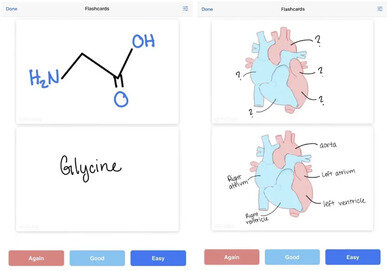 Done
Flashcards
H₂N
OH
O
Glycine
Again
Good
Easy
Done
Flashcards
?
?
?
?
?
aorta
Right
atrium
Left atrium
left ventricle
Right
ventricle
Again
Good
Easy